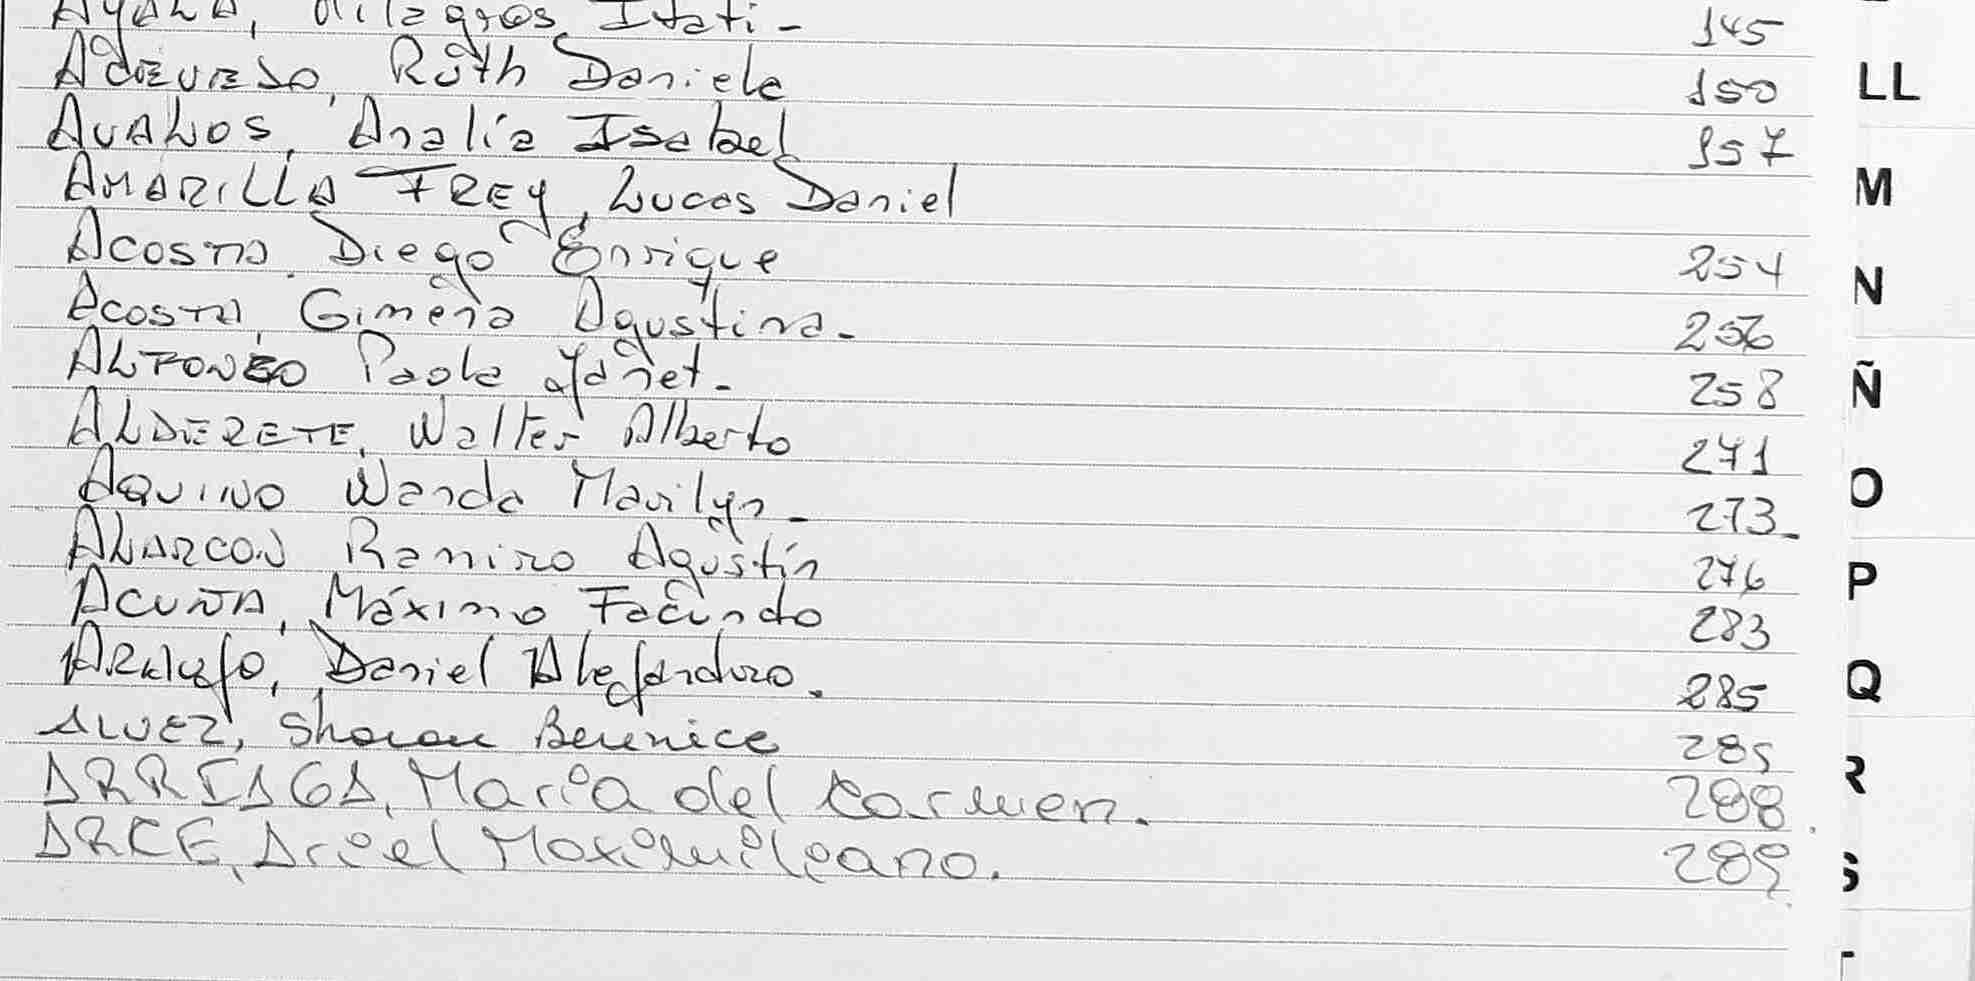 AYALA, Milagros Itati- 145
Ruth Daniela 150
AVALOS, Analía Isabel 157
AMARILLA FREY, Lucas Daniel
ACOSTA, Diego Enrique 254
ACOSTA, Gimena Agustina- 256
ALFONSO Paola Yanet- 258
ALDERETE, Walter Alberto 271
AQUINO Wanda Marilyn- 273-
ALARCON Ramiro Agustín 276
ACUÑA, Máximo Facundo 283
Daniel Alejandro. 285
ALVEZ, Sharon Berenice 285
ARRIAGA, María del Carmen. 288
ARCE, Ariel Maximiliano. 289
LL
M
N
Ñ
O
P
Q
R
S